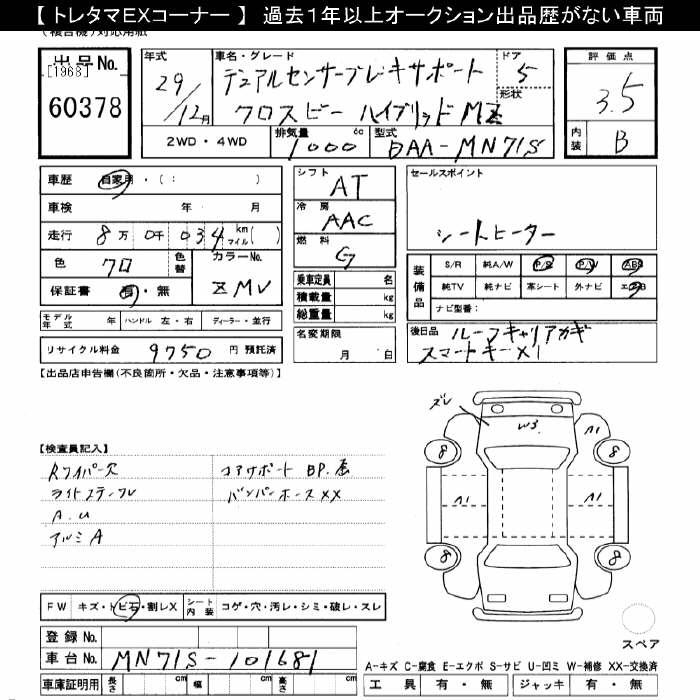 【 トレタマEXコーナー 】 過去1年以上オークション出品歴がない車両
(複合機)対応用紙
出品No.
[1968]
60378
年式
29/12月
車名・グレード
デュアルセンサーブレーキサポート
クロスビー ハイブリッドMZ
ドア
5
形状
評価点
3.5
内装
B
2WD・4WD
排気量
1000 cc
型式
DAA-MN71S
車歴 自家用・( : )
車検 年 月
走行 8万 0千 034 km マイル( )
色 クロ 色替 カラーNo.
ZMV
保証書 有・無
シフト
AT
冷房
AAC
燃料
G
セールスポイント
シートヒーター
乗車定員 名
積載量 kg
総重量 kg
装備品
S/R 純A/W P/S P/W ABS
純TV 純ナビ 革シート 外ナビ エアB
ナビ型番:
モデル年式 年 ハンドル 左・右 ディーラー・並行
名変期限
月 日
後日品
ルーフキャリアカギ
スマートキーX1
リサイクル料金 9750 円 預託済
【出品店申告欄(不良箇所・欠品・注意事項等)】
ズレ
W3
A1
8
8
A1
A1
8
8
【検査員記入】
Rワイパー欠
コアサポート BP.歪
バンパーホースXX
A.U
アルミA
FW キズ・トビ石・割レX シート内装 コゲ・穴・汚レ・シミ・破レ・スレ
登録No.
車台No. MN71S-101681
車庫証明用 長さ cm 幅 cm 高さ cm
スペア
A-キズ C-腐食 E-エクボ S-サビ U-凹ミ W-補修 XX-交換済
工具 有・無 ジャッキ 有・無